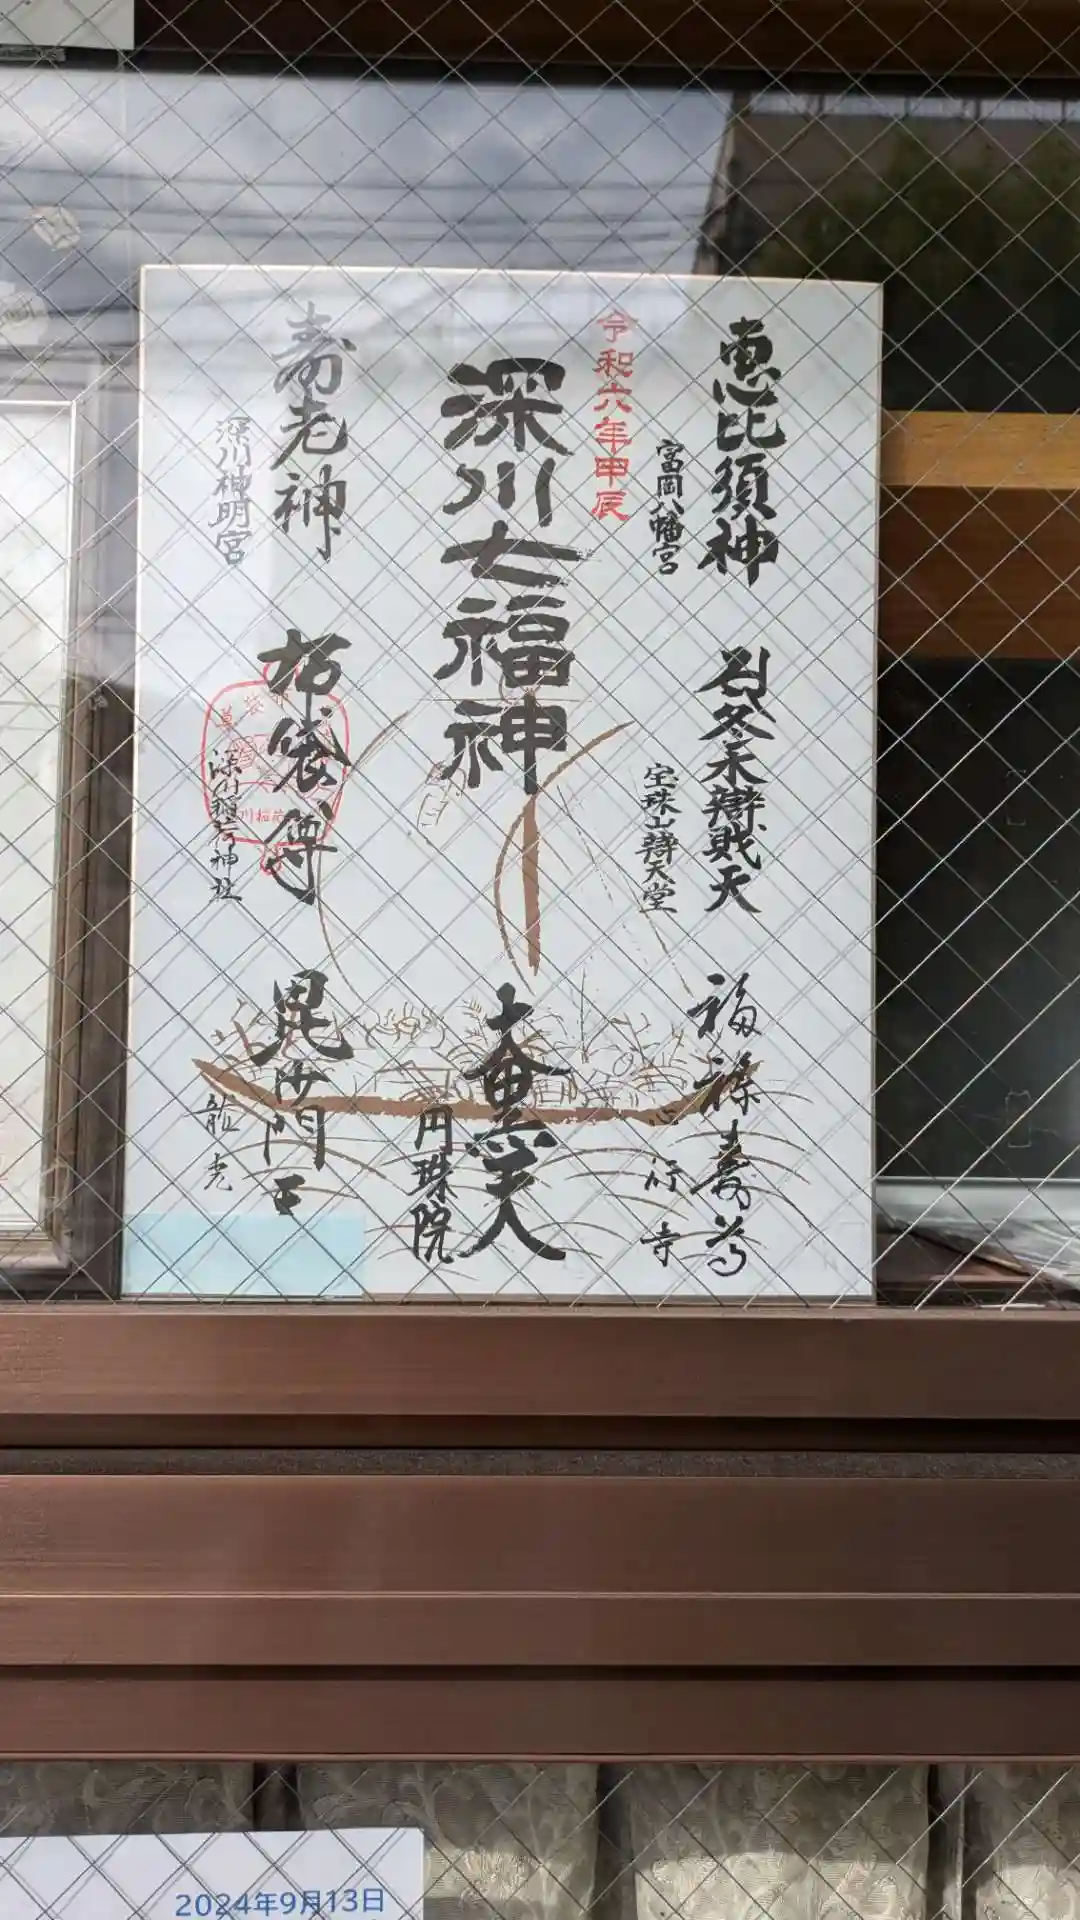 恵比須神
富岡八幡宮
冬木辯戝天
宝珠山辯天堂
福禄寿尊
心行寺
令和六年甲辰
深川七福神
大黒天
円珠院
寿老神
深川神明宮
布袋尊
深川稲荷神社
毘沙門天
龍光
2024年9月13日